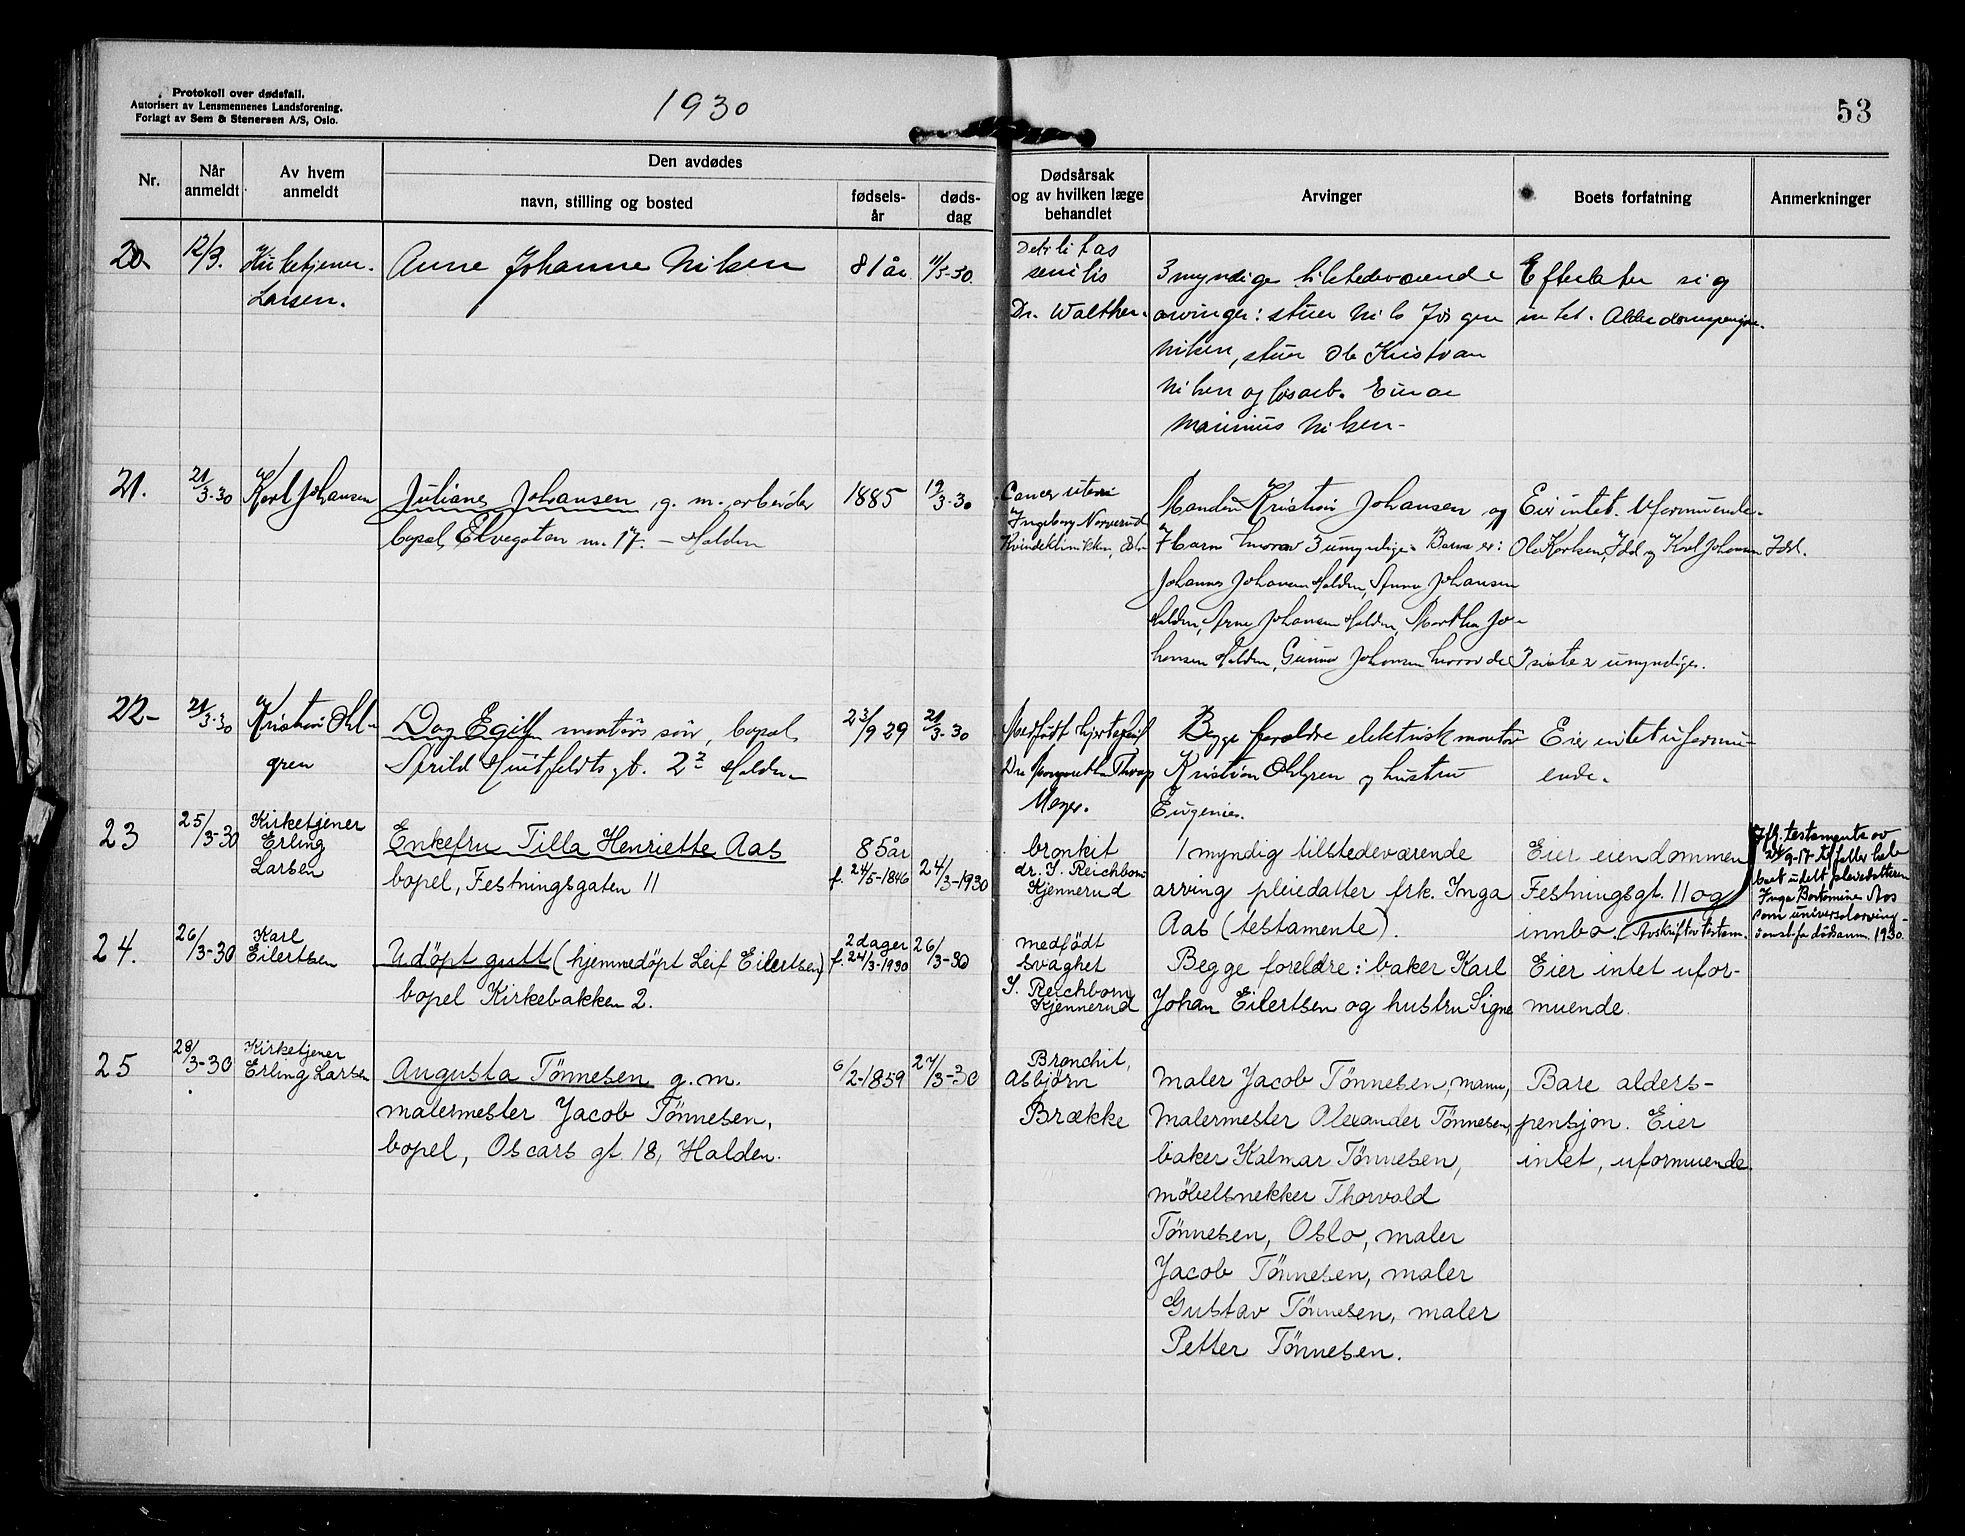 Protokoll over dødsfall.
Autorisert av Lensmennenes Landsforening.
Forlagt av Sem & Stenersen A/S, Oslo.
1930
53
Nr.
Når anmeldt
Av hvem anmeldt
Den avdødes
navn, stilling og bosted
fødsels-år
døds-dag
Dødsårsak og av hvilken læge behandlet
Arvinger
Boets forfatning
Anmerkninger
20.
12/3.
Kirketjener
Larsen.
Anne Johanne Nilsen
81 år
11/3-30.
Debilitas
senilis
Dr. Walther.
3 myndige tilstedeværende
arvinger: stuer Nils Jörgen
Nilsen, stuer Ole Kristian
Nilsen og løsarb. Einar
Marinius Nilsen-
Efterlater sig
intet. Alderdomspensjon.
21.
21/3-30
Karl Johansen
Juliane Johansen, g. m. arbeider
bopal, Elvegaten nr. 17. - Halden
1885
19/3-30
Cancer uteri
Ingeborg Norverud
Kvindeklinikken, Oslo
Manden Kristian Johansen og
7 barn hvorav 3 umyndige. Barna er:
Johannes Johansen Halden, Anna Johansen
Halden, Arne Johansen Halden, Martha Jo-
hansen Halden, Gunnar Johansen hvorav de 3 siste er umyndige.
Eier intet. Uformuende.
Ole Karlsen, Idd og Karl Johansen Idd.
22-
21/3-30
Kristian Ohl-
gren
Dag Egill montörs sön, bopal,
Arild Huitfeldts gt. 2 Halden
23/9 29
21/3-30
Medfödt hjertefeil
Dr Margaretha Thrap
Meyer.
Begge foreldre elektrisk montör
Kristian Ohlgren og hustru
Eugenie.
Eier intet uformu-
ende.
23
25/3-30
Kirketjener
Erling
Larsen
Enkefru Tilla Henriette Aas
bopel, Festningsgaten 11
85 år
f. 24/5-1846
24/3-1930
bronkit
dr. I. Reichborn
Kjennerud
1 myndig tilstedeværende
arving pleiedatter frk. Inga
Aas (testamente).
Eier eiendommen
Festningsgt. 11 og
innbo. (Avskrift av testam.
Ifg. testamente av
24/9-17- tilfaller hele
boet udelt pleiedatteren
Inga Aas
som universalarving-
24.
26/3-30
Karl
Eilertsen
Udöpt gutt (hjemmedöpt Leif Eilertsen)
bopel Kirkebakken 2.
2 dager
f. 24/3-1930
26/3-30
medfödt
svaghet
I. Reichborn
Kjennerud
Begge foreldre: baker Karl
Johan Eilertsen og hustru Signe
Eier intet ufor-
muende.
25
28/3-30
Kirketjener
Erling Larsen
Augusta Tönnesen g.m.
malermester Jacob Tönnesen,
bopel, Oscars gt. 18, Halden.
6/2-1859
27/3-30
Bronchit,
Asbjörn
Brække
Maler Jacob Tönnesen, mann,
Malermester Alexander Tönnesen,
baker Kalmar Tönnesen,
möbelsnekker Thorvald
Tönnesen, Oslo, maler
Jacob Tönnesen, maler
Gustav Tönnesen, maler
Petter Tönnesen.
Bare alders-
pensjon. Eier
intet, uformuende.